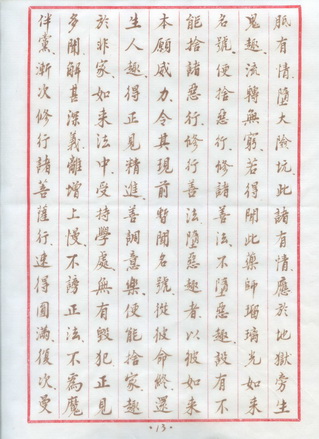 胝有情墮大險坑此諸有情應於地獄旁生
鬼趣流轉無窮若得聞此藥師瑠璃光如來
名號便捨惡行修諸善法不墮惡趣設有不
能捨諸惡行修行善法墮惡趣者以彼如來
本願威力令其現前暫聞名號從彼命終還
生人趣得正見精進善調意樂便能捨家趣
於非家如來法中受持學處無有毀犯正見
多聞解甚深義離增上慢不謗正法不為魔
伴黨漸次修行諸菩薩行速得圓滿復次曼
·13·